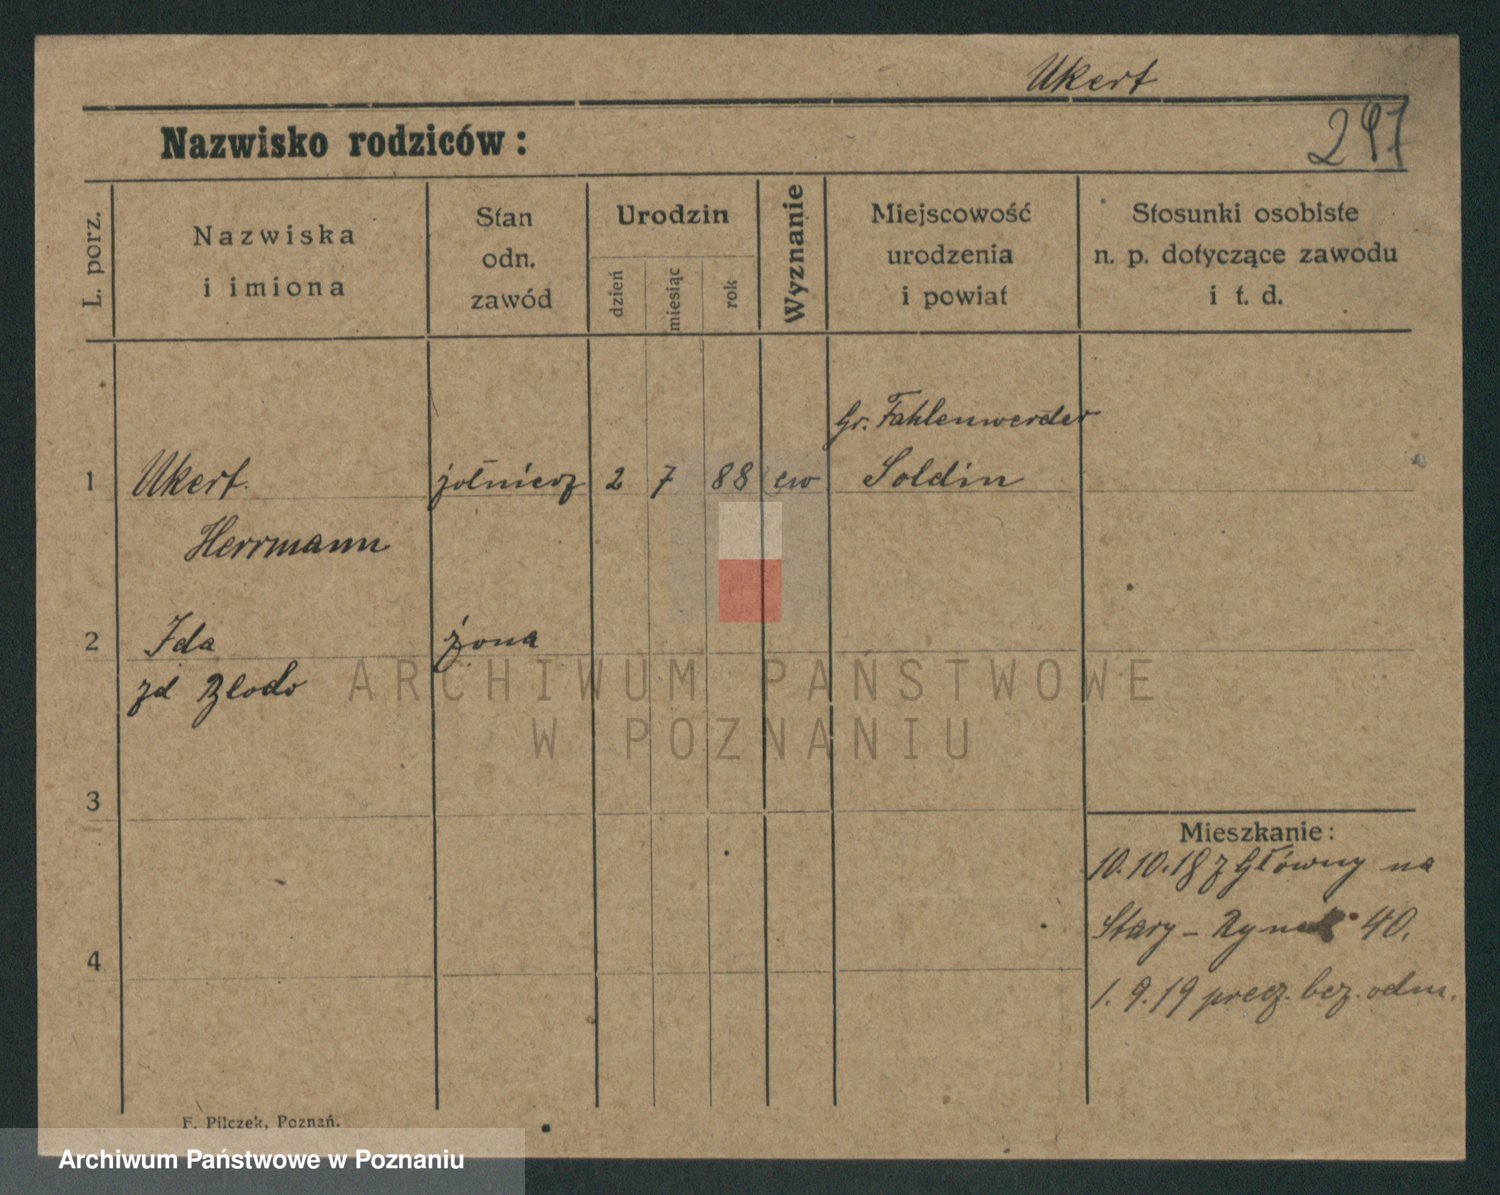 Ukert
297
Nazwisko rodziców:
L. porz.
Nazwiska
i imiona
Stan
odn.
zawód
Urodzin
dzień
miesiąc
rok
Wyznanie
Miejscowość
urodzenia
i powiat
Stosunki osobiste
n. p. dotyczące zawodu
i t. d.
Gr. Fahlenwerder
1 Ukert. żołnierz 2 7 88 ew Soldin
Herrmann
2 Ida żona
zd
ARCHIWUM PAŃSTWOWE
W POZNANIU
3
Mieszkanie:
10.10.18 z Główny na
Stary-Rynek 40.
4
1.9.19 precz. bez. odm.
F. Pilczek, Poznań.
Archiwum Państwowe w Poznaniu